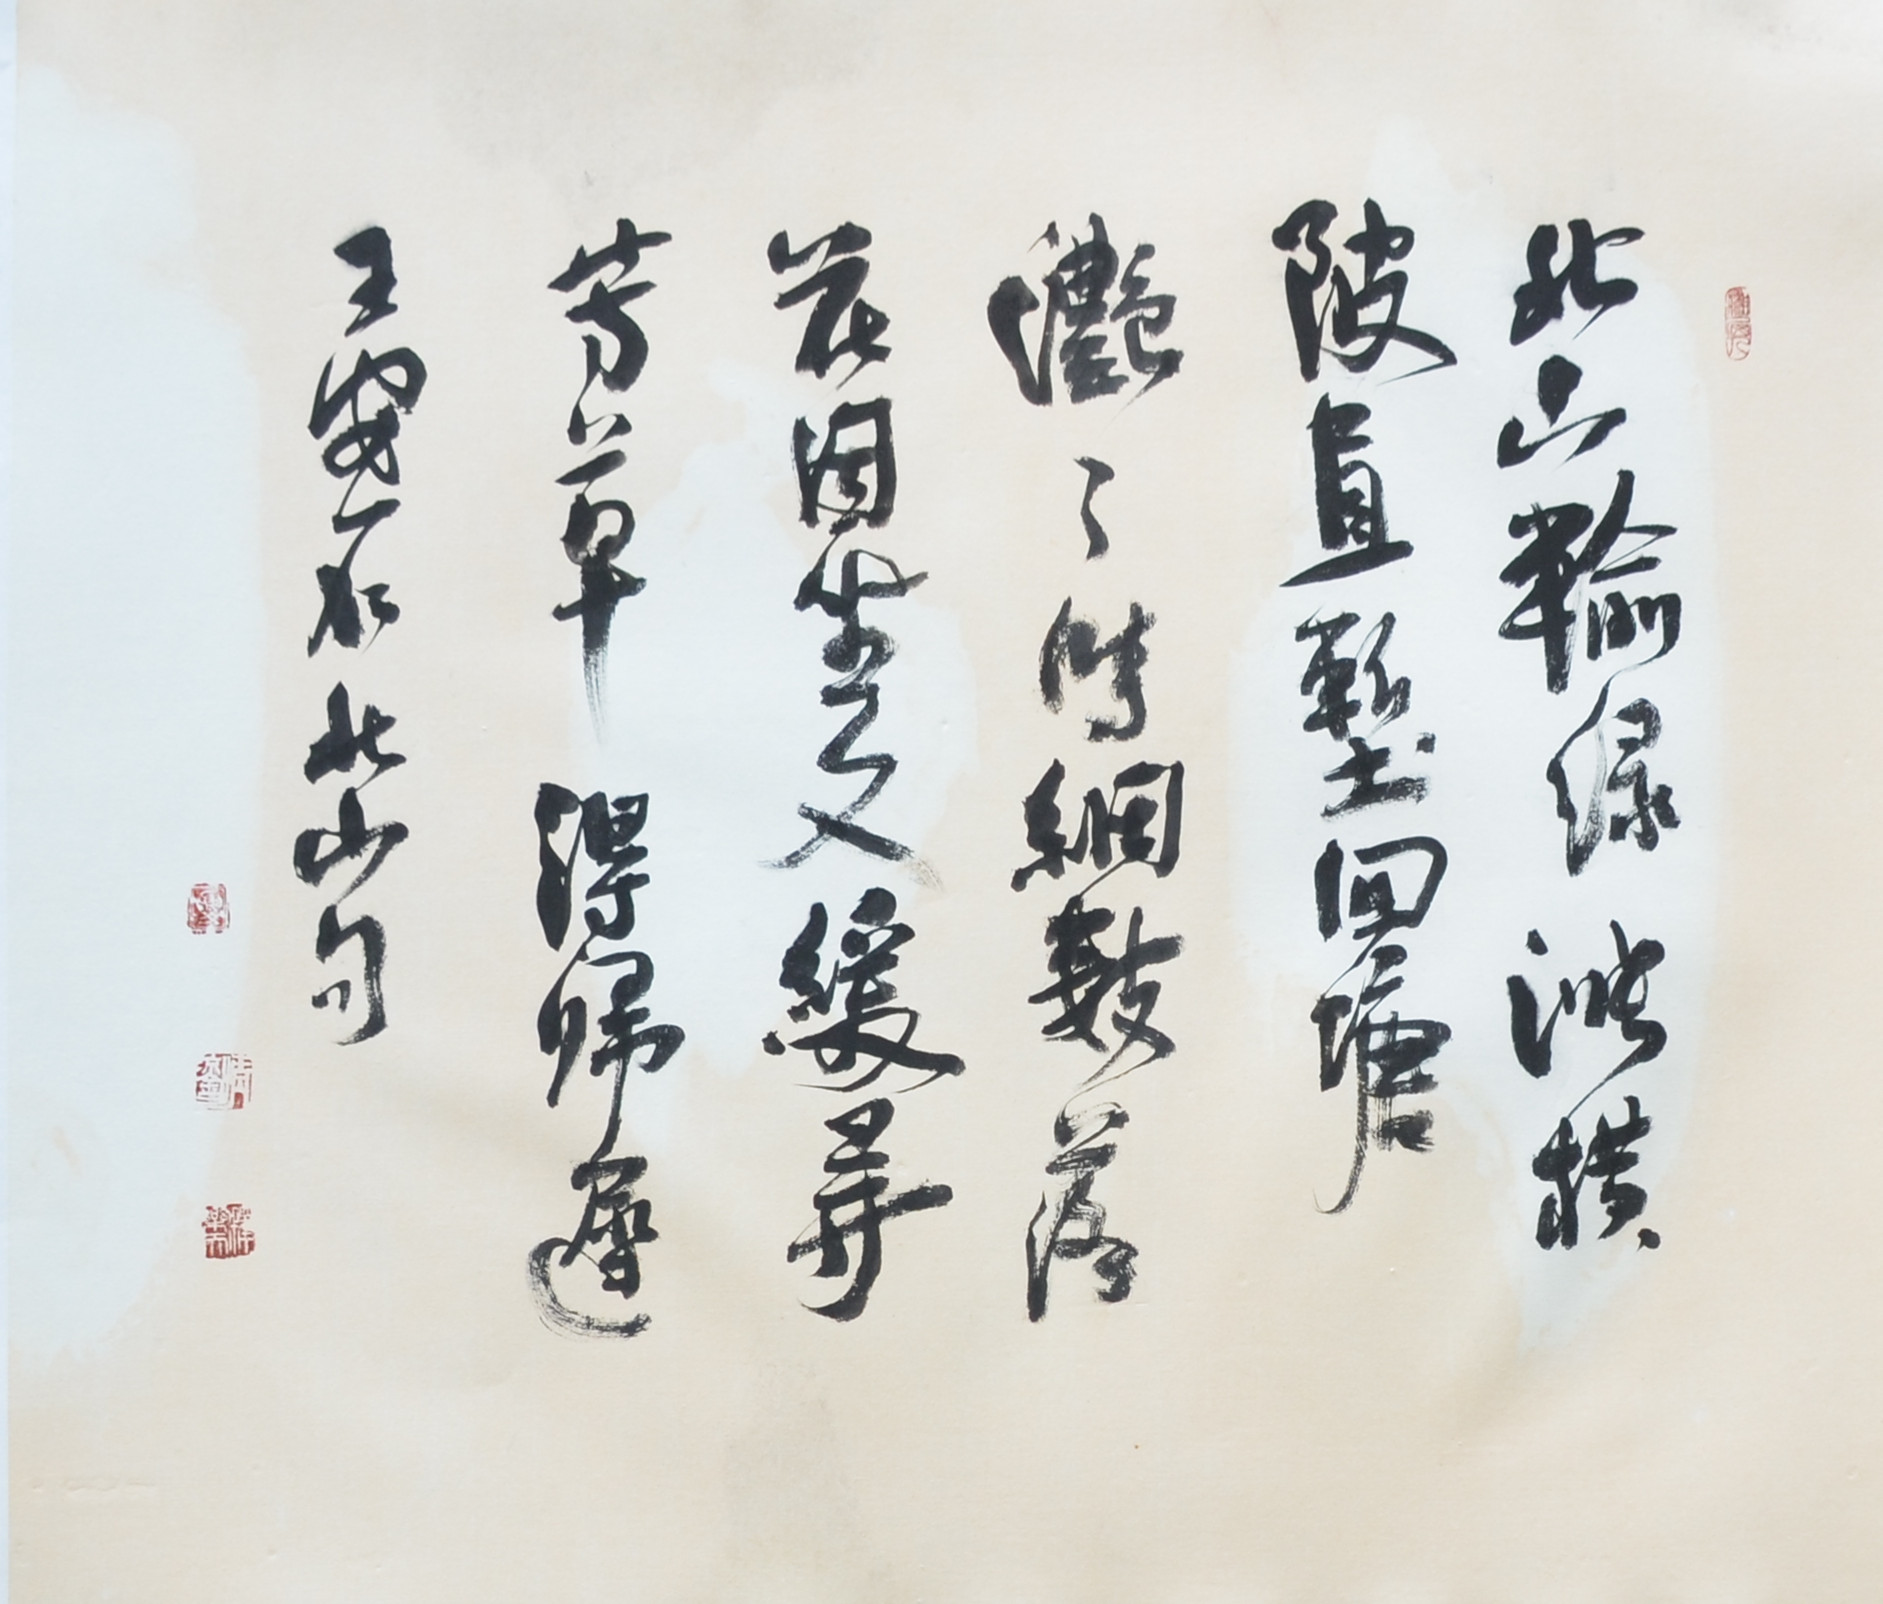 北山輸緑漲橫
陂直塹回塘
灩〻時細數落
花因坐久緩尋
芳草得歸遲
王安石北山句